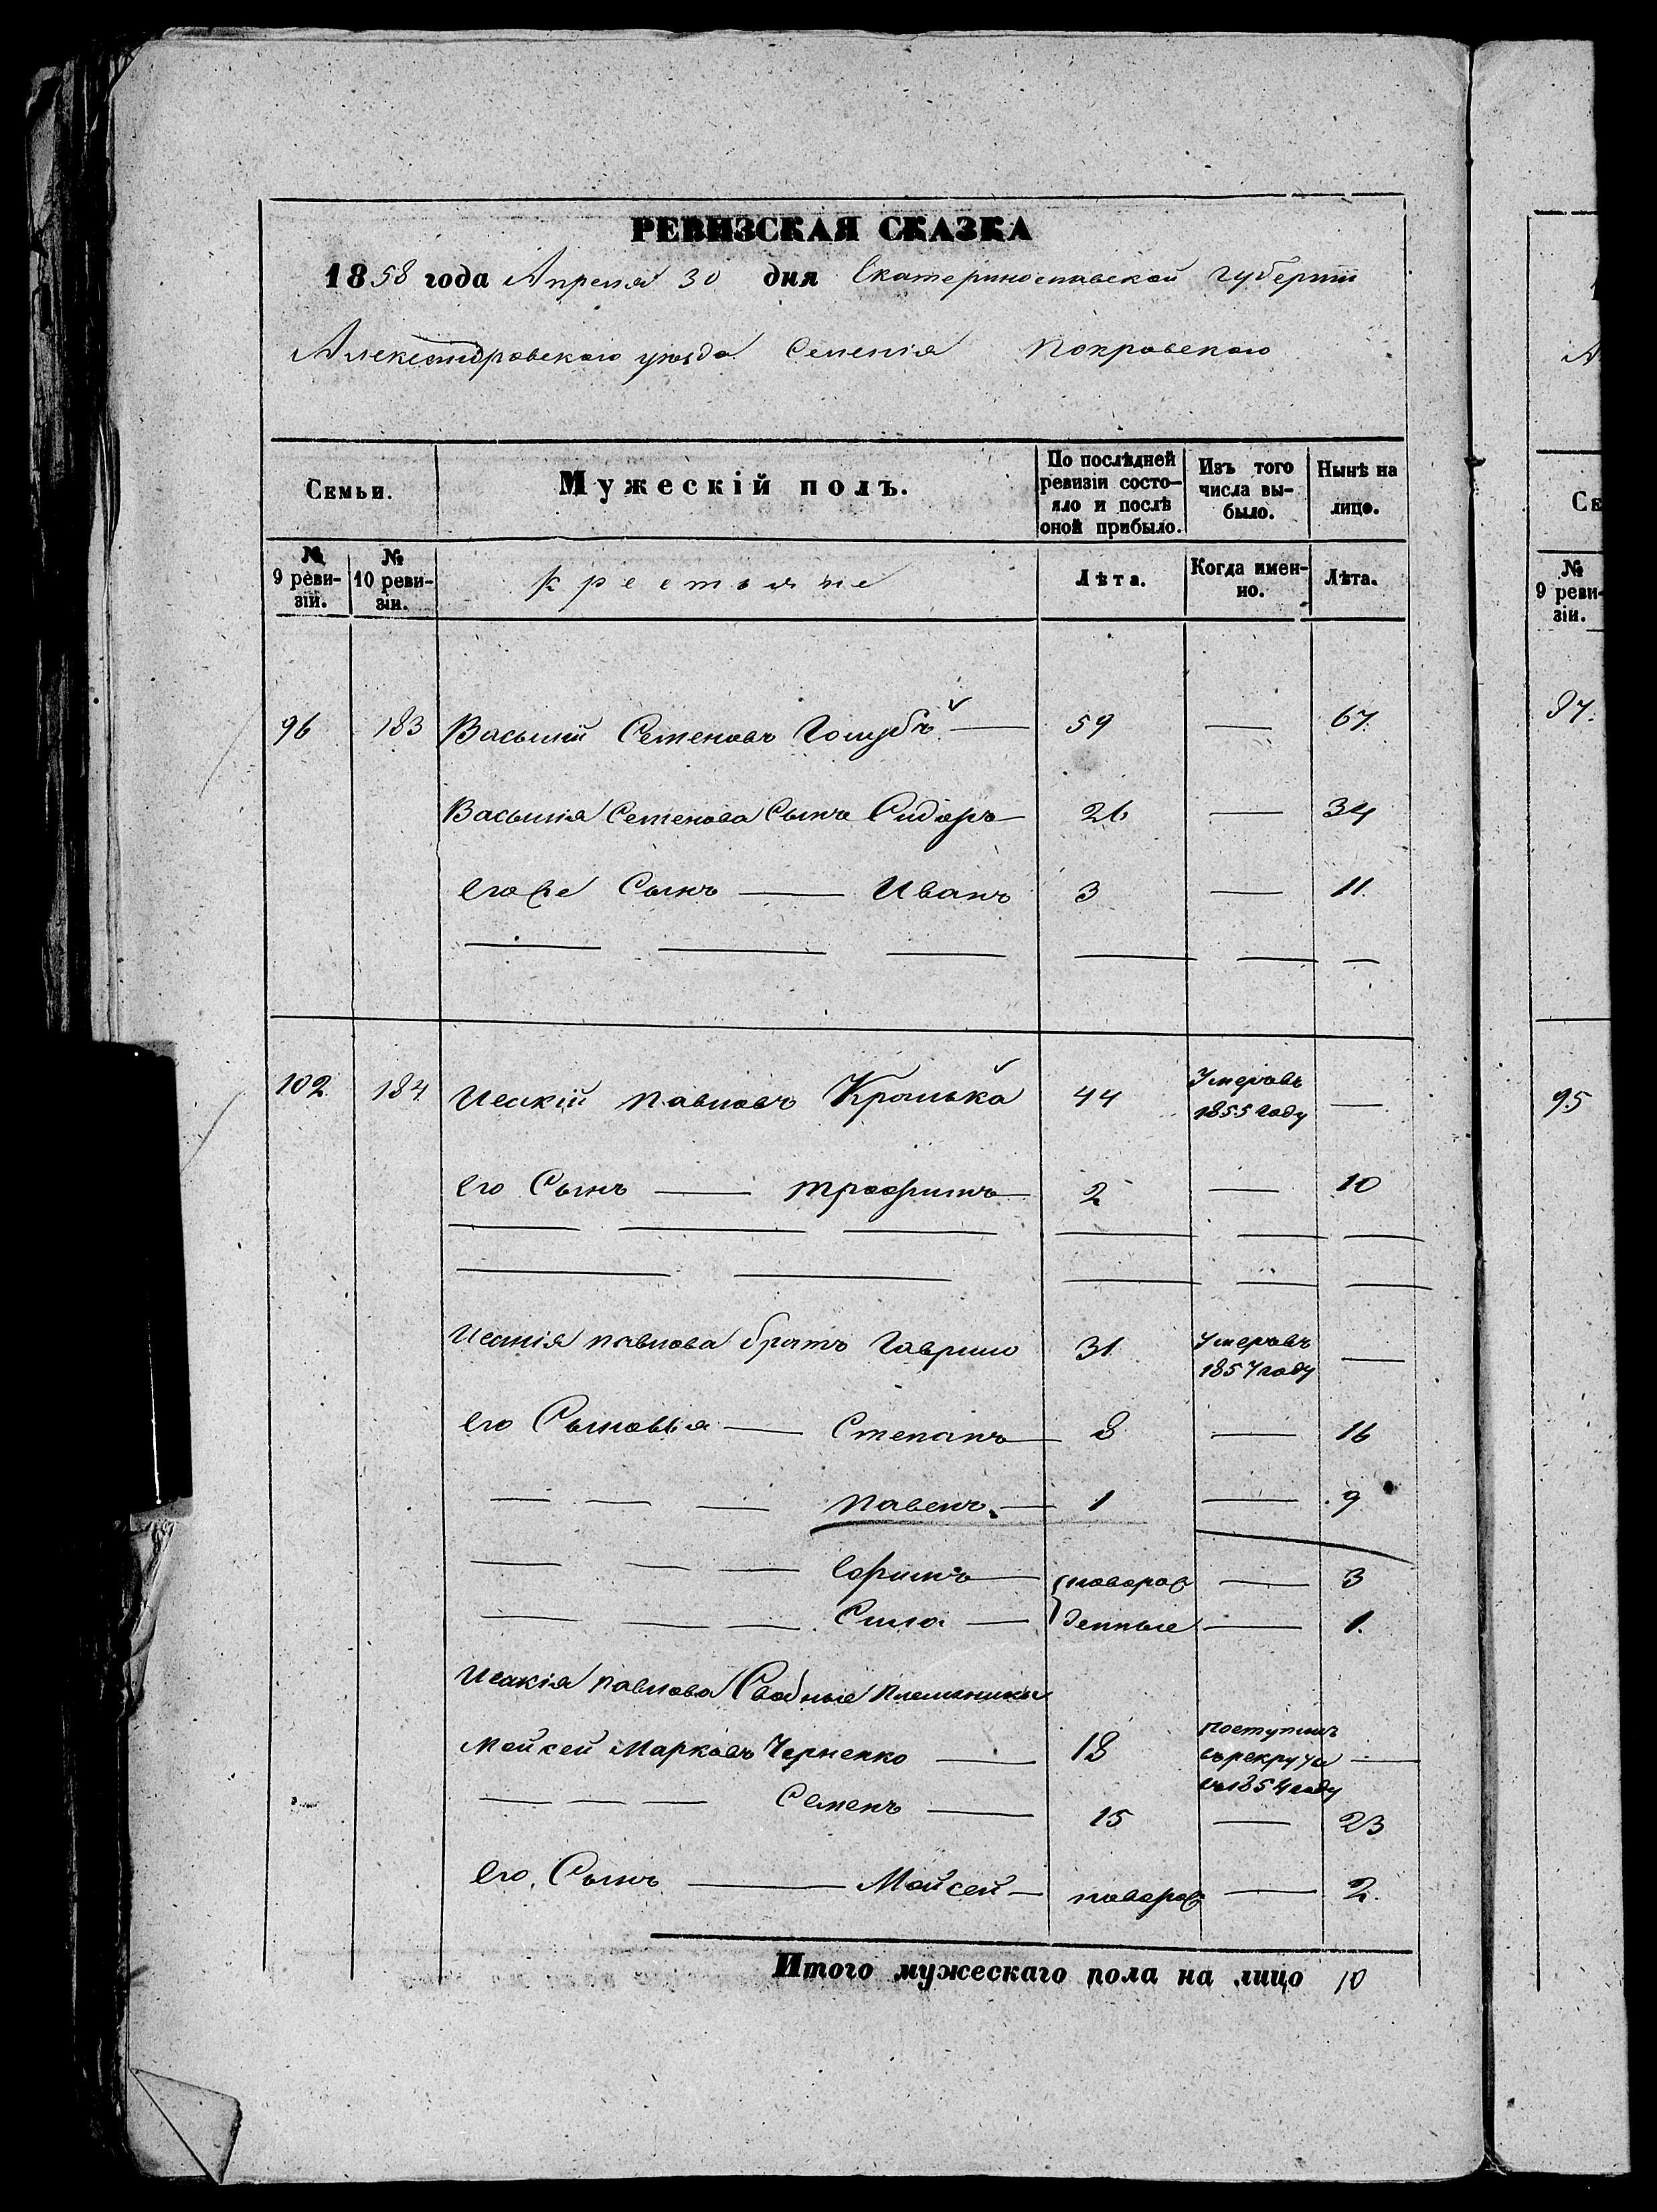 РЕВИЗСКАЯ СКАЗКА
1858 года Апреля 30 дня Екатеринославской губерніи
Александровскаго уѣзда Селенія Покровскаго
Семьи.
Мужескій полъ.
По послѣдней ревизіи состо-
яло и послѣ
оной прибыло.
Изъ того
числа вы-
было.
Нынѣ на
лицо.
№
9 реви-
зіи.
№
10 реви-
зіи.
Крестьяне
Лѣта.
Когда имен-
но.
Лѣта.
96 183 Василій Семеновъ Голубъ — 59 — 67.
Василія Семенова Сынъ Сидоръ — 26 — 34
его же Сынъ — Иванъ 3 — 11.
102 184 Исакій Павловъ Кролька 44 Умеръ въ 1855 году —
его Сынъ — Трофимъ — 2 — 10
Исакія Павлова братъ Гаврило 31 Умеръ въ 1857 году —
его Сыновья — Степанъ — 8 — 16
— — — Павелъ. — 1 — 9
— — — Ефимъ — новорож — 3
— — — Сила — денные — 1.
Исакія Павлова Сводные племяники
Мойсей Марковъ Черненко — 18 поступилъ въ рекруты въ 1854 году —
— — — Семенъ — 15 — 23
его Сынъ — Мойсей — новорож — 2.
Итого мужескаго пола на лицо 10
А
Се
№
9 реви-
зіи.
97.
95